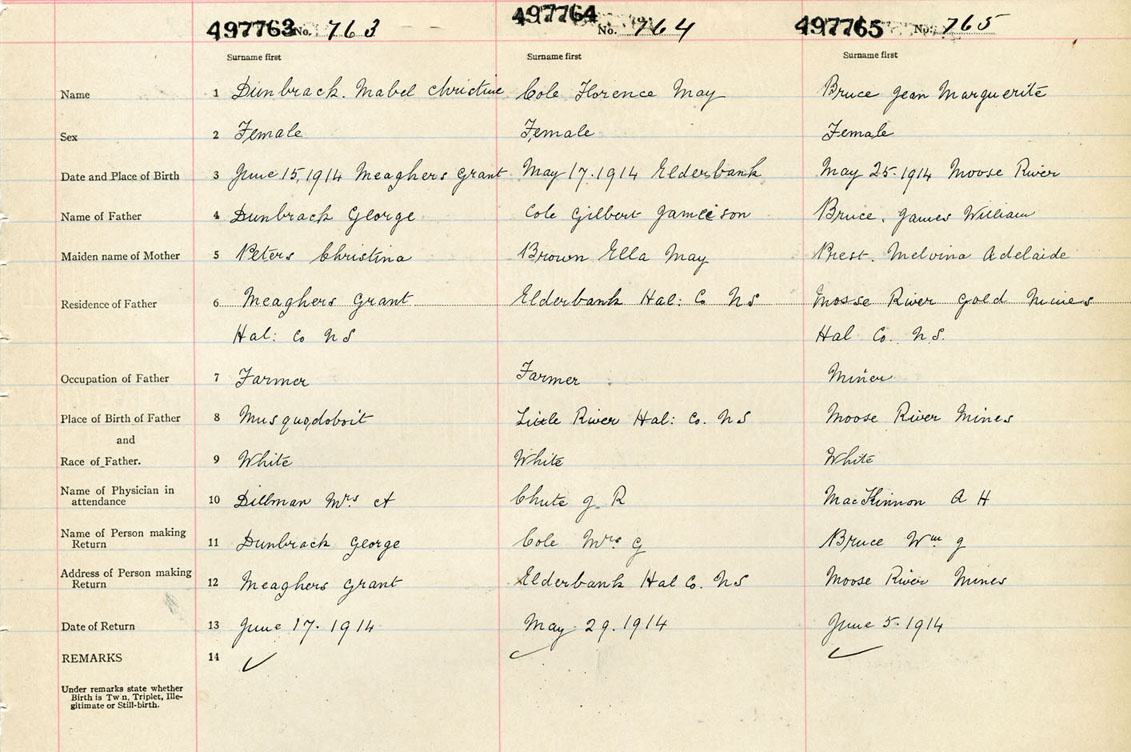 497763 No. 763 497764 No. 764 497765 No. 765
Surname first Surname first Surname first
Name 1 Dunbrack. Mabel Christine Cole Florence May Bruce Jean Marguerite
Sex 2 Female Female Female
Date and Place of Birth 3 June 15, 1914 Meaghers Grant May 17. 1914 Elderbank May 25. 1914 Moose River
Name of Father 4 Dunbrack George Cole Gilbert Jamieson Bruce, James William
Maiden name of Mother 5 Peters Christina Brown Ella May Prest. Melvina Adelaide
Residence of Father 6 Meaghers Grant Elderbank Hal: Co NS Moose River Gold Mines
Hal: Co NS Hal Co. N.S.
Occupation of Father 7 Farmer Farmer Miner
Place of Birth of Father 8 Musquodoboit Little River Hal: Co. NS Moose River Mines
and
Race of Father. 9 White White White
Name of Physician in
attendance 10 Dillman Mrs A Chute J R MacKinnon A H
Name of Person making
Return 11 Dunbrack George Cole Mrs G Bruce Wm J
Address of Person making
Return 12 Meaghers Grant Elderbank Hal Co. NS Moose River Mines
Date of Return 13 June 17. 1914 May 29. 1914 June 5. 1914
REMARKS 14
Under remarks state whether
Birth is Twin, Triplet, Ille-
gitimate or Still-birth.